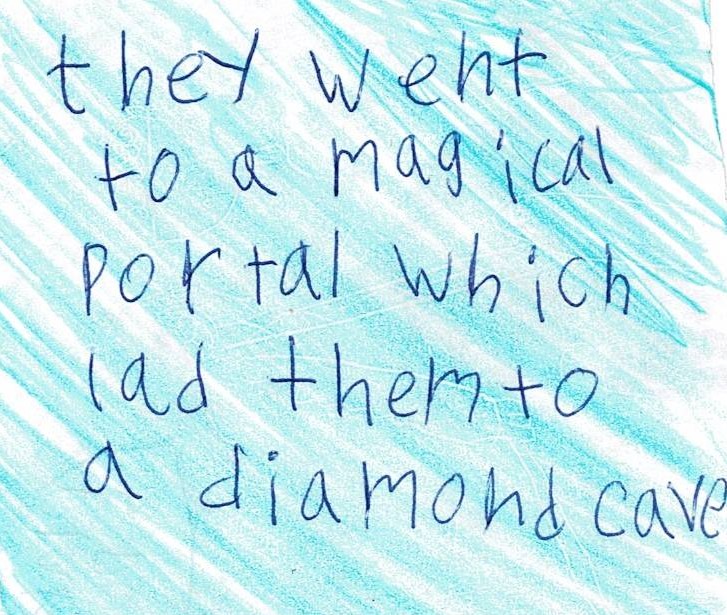 they went
to a magical
portal which
lad them to
a diamond cave